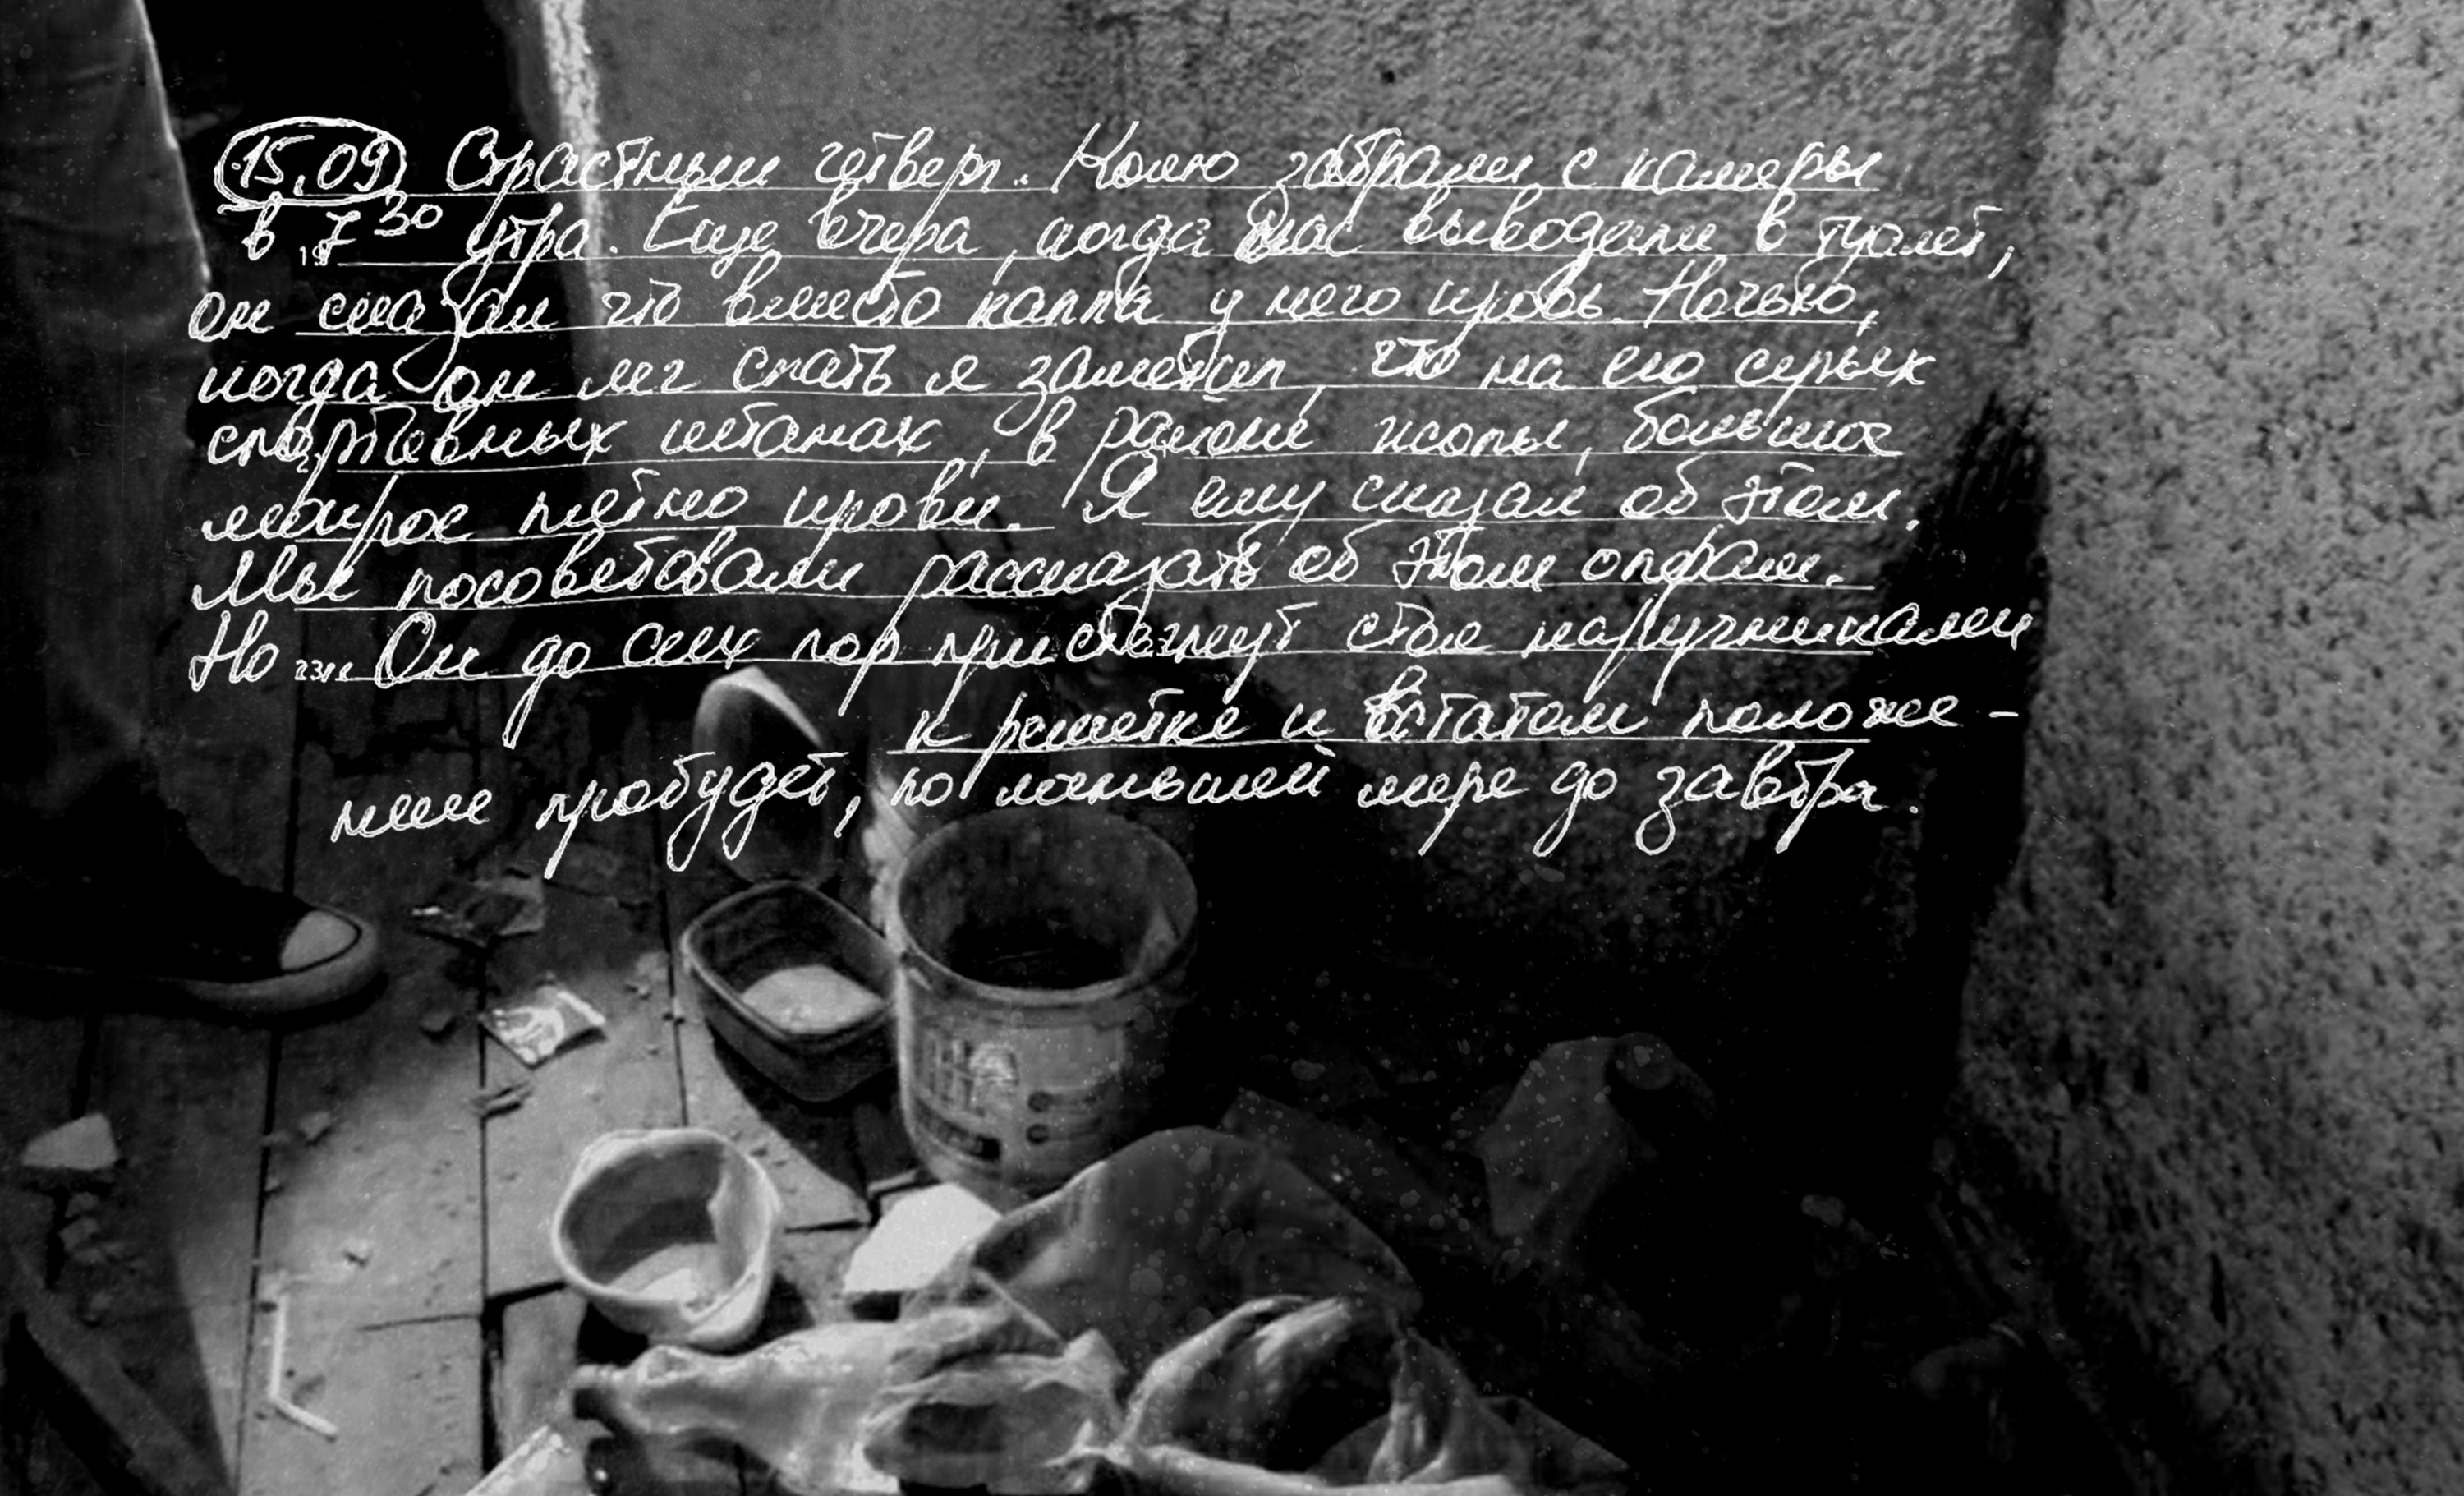 15.09 Страстный четверг. Колю забрали с камеры
в 7 30 утра. Еще вчера, когда нас выводили в туалет,
он сказал что вместо каппа у него кровь. Ночью,
когда он лег спать я заметил, что на его серых
спортивных штанах, в районе жопы, большое
мокрое пятно крови. Я ему сказал об этом.
Мы посоветовали рассказать об этом операм.
Но ... Он до сих пор пристегнут стоя наручниками
к решетке и в статом положе-
нии пробудет, по меньшей мере до завтра.